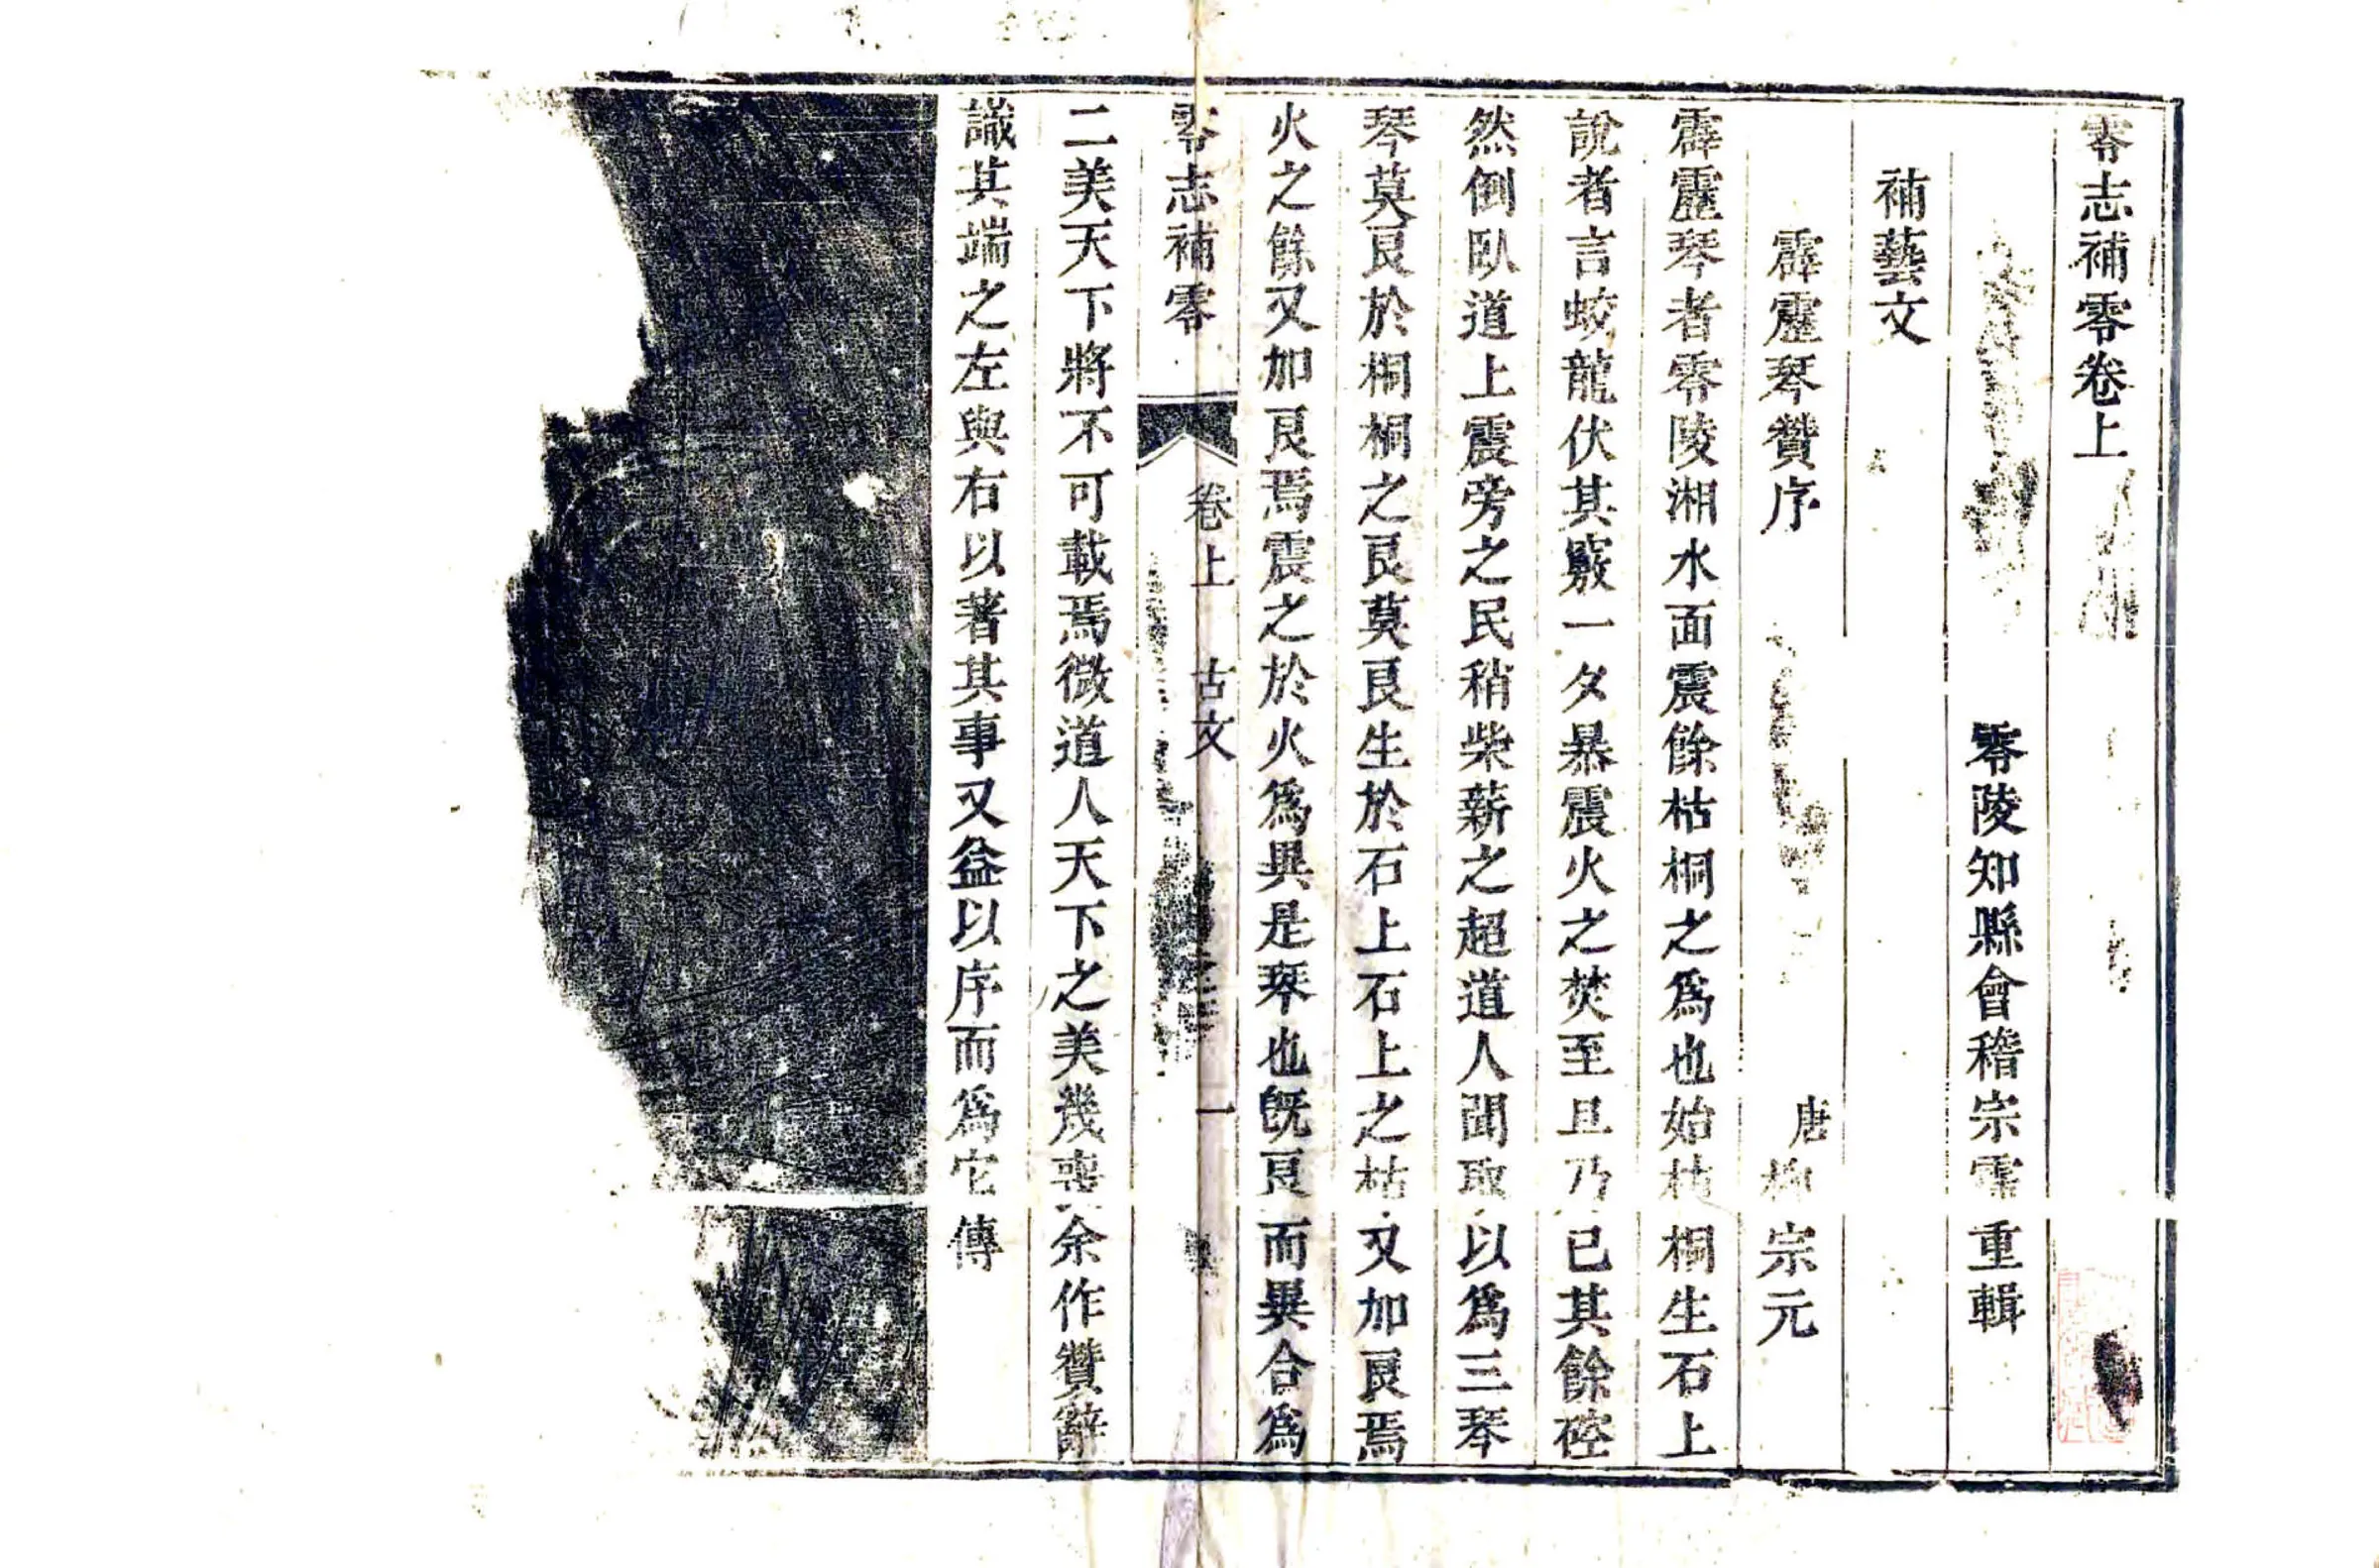 零志補零卷上
零陵知縣會稽宗霈重輯
補藝文
霹靂琴贊序
唐柳宗元
霹靂琴者零陵湘水面震餘枯桐之爲也始枯桐生石上
說者言蛟龍伏其竅一夕暴震火之焚至旦乃已其餘硿
然倒臥道上震旁之民稍柴薪之超道人聞取以爲三琴
琴莫良於桐桐之良莫良生於石上石上之枯又加良焉
火之餘又加良焉震之於火爲異是琴也旣良而異合爲
零志補零
卷上
古文
一
二美天下將不可載焉微道人天下之美幾喪余作贊辭
識其端之左與右以著其事又益以序而爲它傳